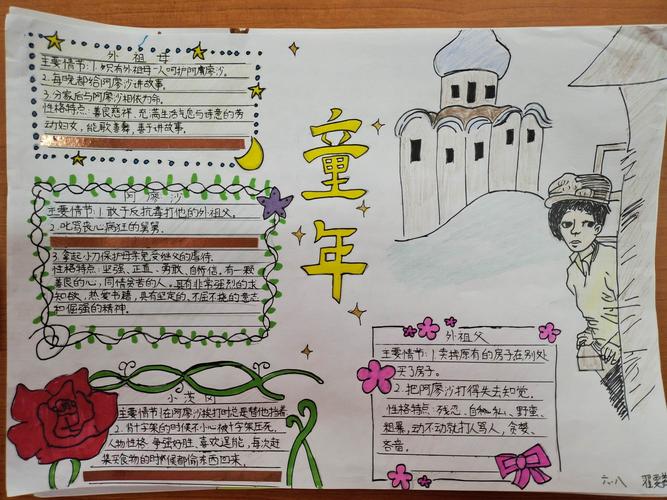 外祖母
主要情节:1.只有外祖母一人呵护阿廖沙。
2.每晚都给阿廖沙讲故事。
3.分家后与阿廖沙相依为命。
性格特点:善良慈祥、充满生活气息与诗意的劳
动妇女,能歌善舞,善于讲故事。
童年
阿廖沙
主要情节:1.敢于反抗毒打他的外祖父。
2.叱骂丧心病狂的舅舅。
3.拿起小刀保护母亲免受继父的虐待。
性格特点:坚强、正直、勇敢、自信。有一颗
善良的心,同情贫苦的人。具有非常强烈的求
知欲,热爱书籍,具有坚定的、不屈不挠的意志
和倔强的精神。
小茨冈
主要情节:1.在阿廖沙挨打时总是替他挡着
2.背十字架的时候不小心被十字架压死。
人物性格:争强好胜、喜欢逞能,每次赶
集买食物的时候都偷东西回来。
外祖父
主要情节:1.卖掉原有的房子在别处
买了房子。
2.把阿廖沙打得失去知觉。
性格特点:残忍、自私、野蛮、
粗暴,动不动就打人骂人,贪婪、
吝啬。
六.八